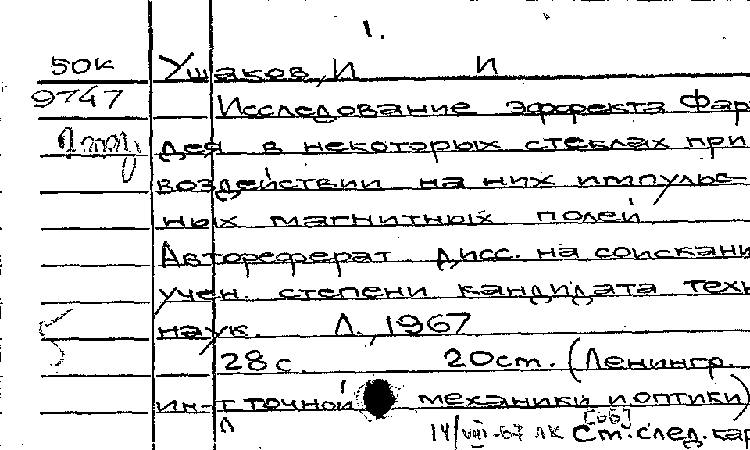 1.
50к Ушаков, И И
9747 Исследование эффекта Фар
дея в некоторых стеклах при
воздействии на них импульс-
ных магнитных полей
Автореферат дисс. на соискани
учен. степени кандидата техн
наук. Л., 1967
28 с. 20 cm. (Ленингр.
ин-т точной механики и оптики)
14/VIII-67 лк Cm. след. кар